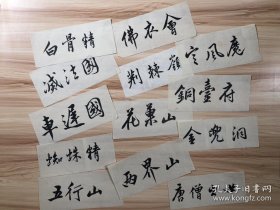 白骨精
佛衣會
滅法國
荆棘嶺
定風魔
車遲國
花菓山
銅臺府
蜘蛛精
西界山
金兜洞
五行山
唐僧
孔夫子旧书网